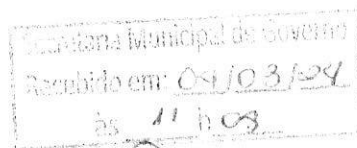 Secretaria Municipal de Governo
Recebido em: 04/03/04
às 11 h 09